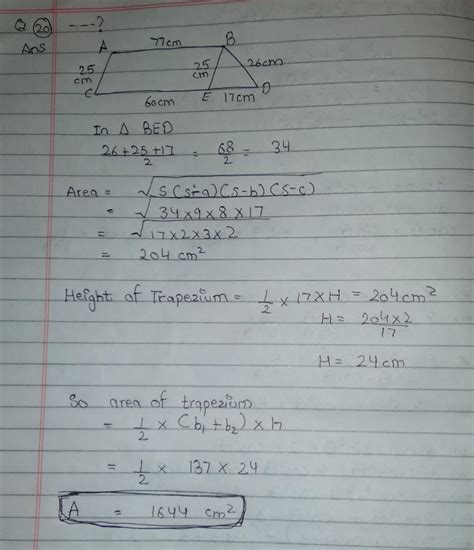 Q 20 ---?
Ans
A 77cm B
25 cm 25 cm 26cm
C 60cm E 17cm D
In Δ BED
26+25+17/2 = 68/2 = 34
Area = √S(S-a)(S-b)(S-c)
= √34×9×8×17
= √17×2×3×2
= 204 cm²
Height of Trapezium = 1/2 × 17×H = 204cm²
H = 204×2/17
H = 24cm
So area of trapezium
= 1/2 × (b₁+b₂) × h
= 1/2 × 137 × 24
A = 1644 cm²